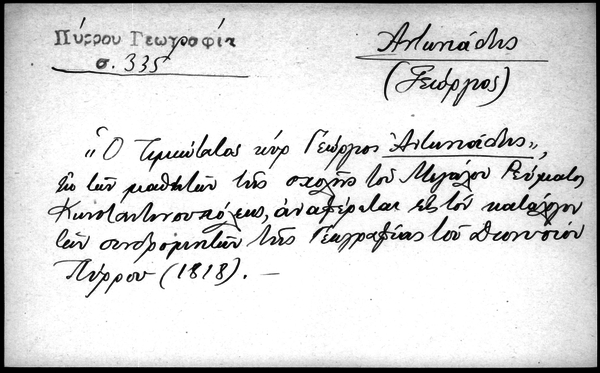 Πύρρου Γεωγραφία
σ. 335
Ἀντωνιάδης
(Γεώργιος)
"Ὁ τιμιώτατος κύρ Γεώργιος Ἀντωνιάδης",
ἐκ τῶν μαθητῶν τῆς σχολῆς τοῦ Μεγάλου Ρεύματος
Κωνσταντινουπόλεως, ἀναφέρεται εἰς τόν κατάλογον
τῶν συνδρομητῶν τῆς Γεωγραφίας τοῦ Διονυσίου
Πύρρου (1818). –